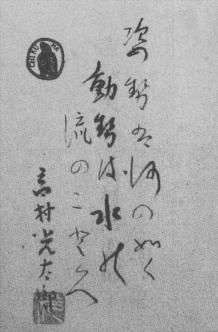 姿勢は河の如く
動勢は水の
流のことく
高村光太郎
CHIKUMA